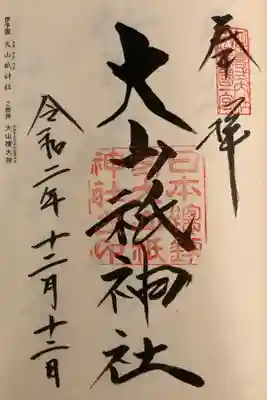 奉拝
大山祇神社
日本總鎮
守大山祇
神社之印
令和二年十二月十二日
伊予國 大山祇神社 ご祭神 大山積大神